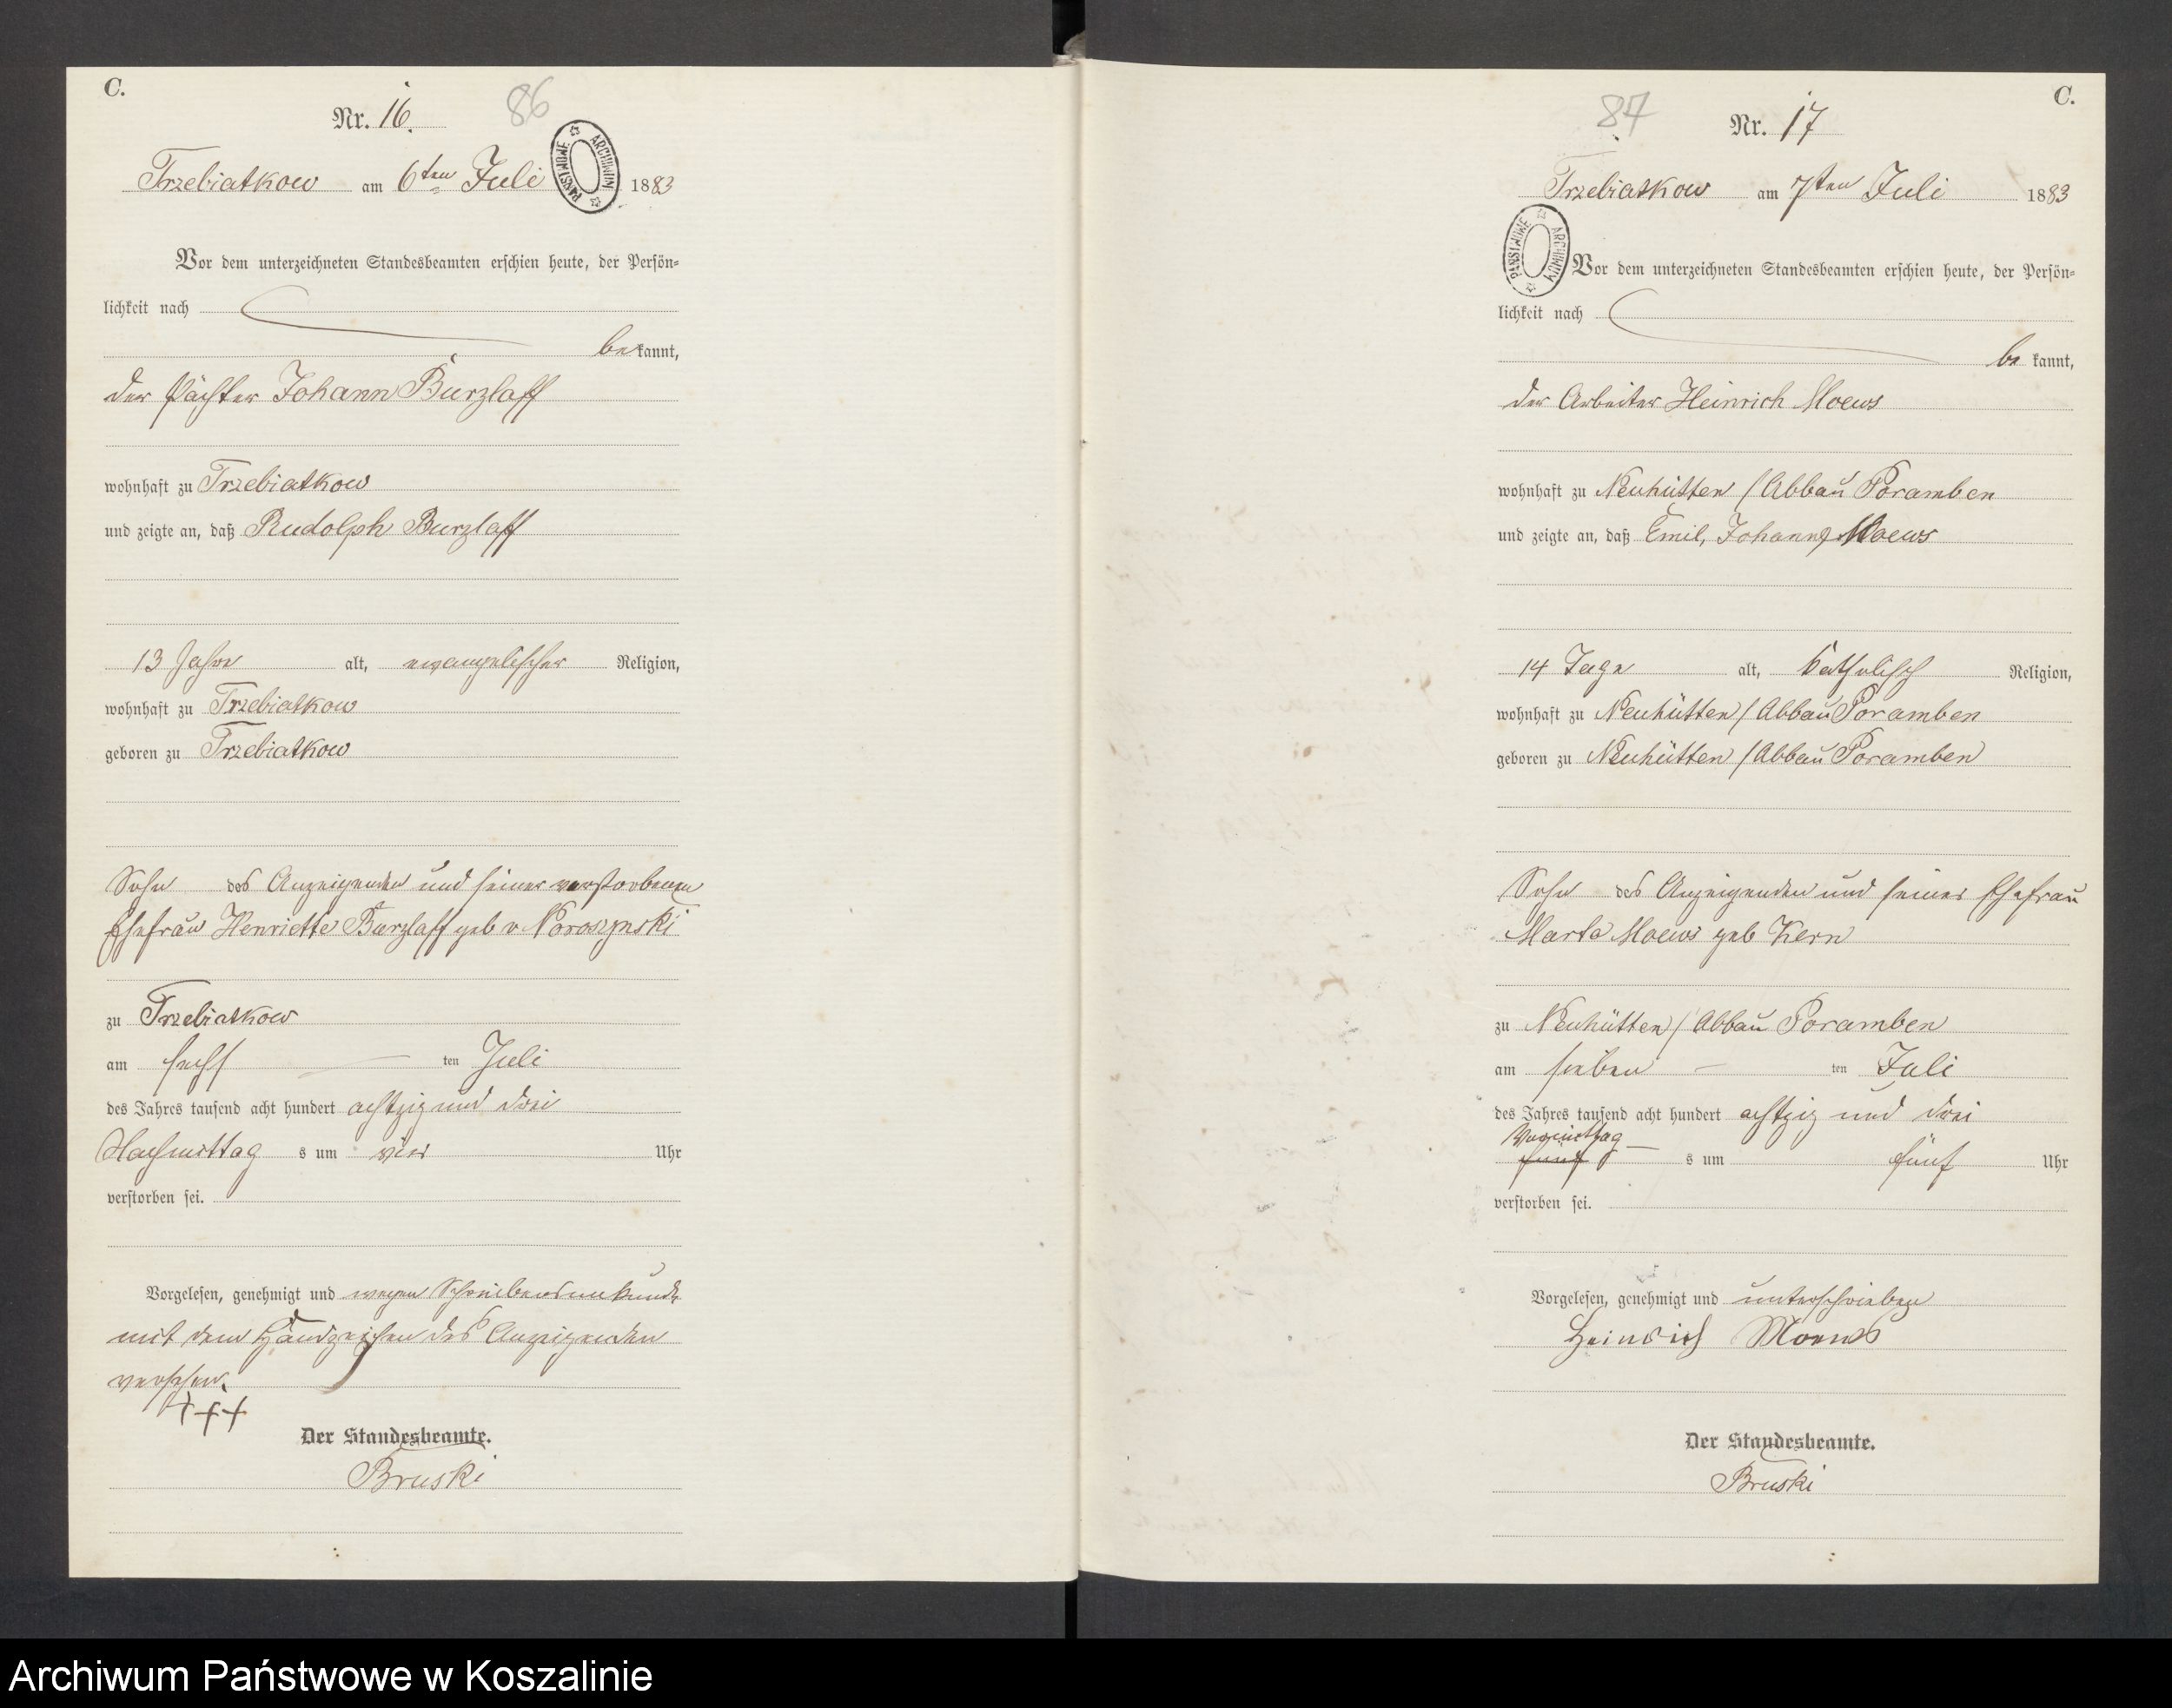 C.
Nr. 16.
86
Trzebiatkow am 6ten Juli 1883
ARCHIWUM PAŃSTWOWE
Vor dem unterzeichneten Standesbeamten erschien heute, der Persön-
lichkeit nach
bekannt,
der Pächter Johann Burzlaff
wohnhaft zu Trzebiatkow
und zeigte an, daß Rudolph Burzlaff
13 Jahre alt, evangelischer Religion,
wohnhaft zu Trzebiatkow
geboren zu Trzebiatkow
Sohn des Anzeigenden und seiner verstorbenen
Ehefrau Henriette Burzlaff geb v
zu Trzebiatkow
am sechs ten Juli
des Jahres tausend acht hundert achtzig und drei
Nachmittag s um vier Uhr
verstorben sei.
Vorgelesen, genehmigt und wegen Schreibensunkunde
mit dem Handzeichen des Anzeigenden
versehen.
+++
Der Standesbeamte.
Bruski
C.
87
Nr. 17
Trzebiatkow am 7ten Juli 1883
ARCHIWUM PAŃSTWOWE
Vor dem unterzeichneten Standesbeamten erschien heute, der Persön-
lichkeit nach
be kannt,
der Arbeiter Heinrich Moews
wohnhaft zu Neuhütten / Abbau Poramben
und zeigte an, daß Emil, Johann Moews
14 Tage alt, katholisch Religion,
wohnhaft zu Neuhütten / Abbau Poramben
geboren zu Neuhütten / Abbau Poramben
Sohn des Anzeigenden und seiner Ehefrau
Marta Moews geb Kern
zu Neuhütten / Abbau Poramben
am sieben ten Juli
des Jahres tausend acht hundert achtzig und drei
Vormittag
fünf s um fünf Uhr
verstorben sei.
Vorgelesen, genehmigt und unterschrieben
Heinrich Moews
Der Standesbeamte.
Bruski
Archiwum Państwowe w Koszalinie